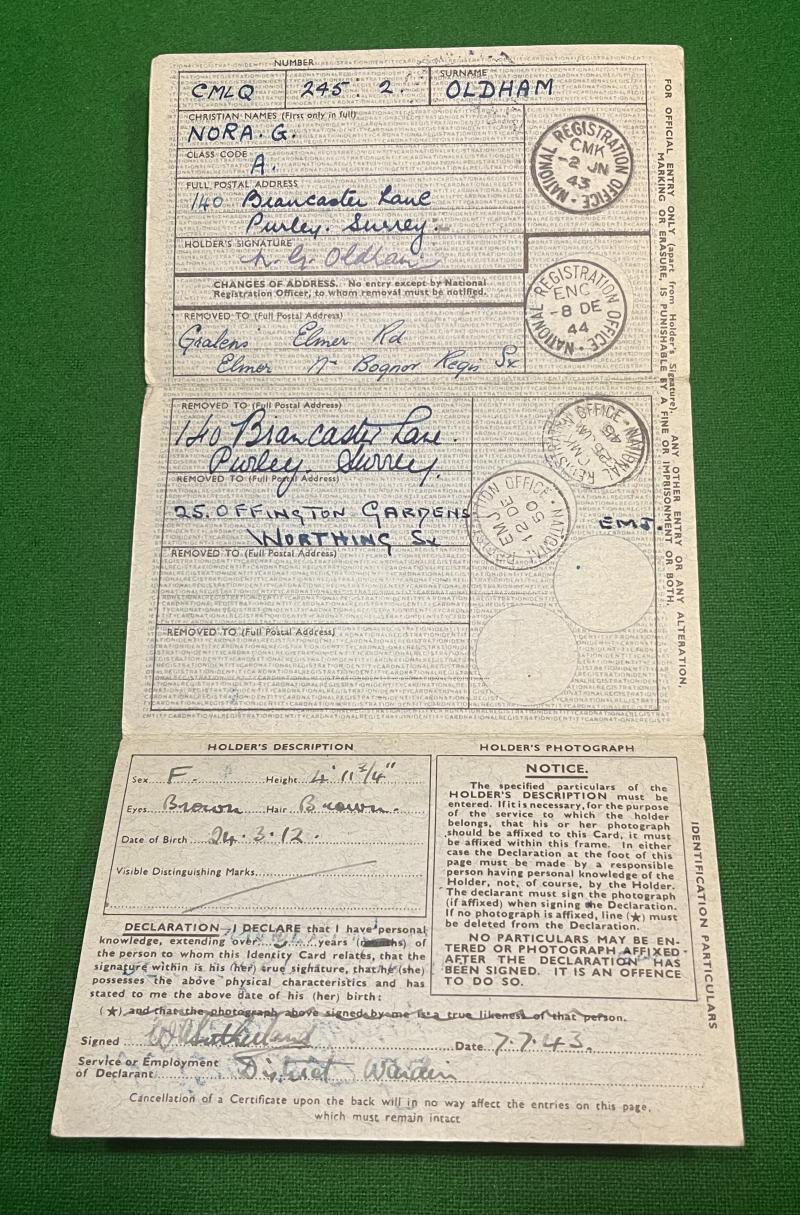 NUMBER
SURNAME
CMLQ 245 : 2. OLDHAM
CHRISTIAN NAMES (First only in full)
NORA. G.
CLASS CODE
A.
FULL POSTAL ADDRESS
140 Brancaster Lane
Purley. Surrey.
HOLDER'S SIGNATURE
N. G. Oldham.
CHANGES OF ADDRESS. No entry except by National
Registration Officer, to whom removal must be notified.
REMOVED TO (Full Postal Address)
Elmer Rd
Elmer Nr Bognor Regis Sx
NATIONAL REGISTRATION OFFICE
CMK
-2 JN
43
NATIONAL REGISTRATION OFFICE
ENC
-8 DE
44
REMOVED TO (Full Postal Address)
140 Brancaster Lane.
Purley. Surrey.
REMOVED TO (Full Postal Address)
25. OFFINGTON GARDENS
WORTHING Sx
REMOVED TO (Full Postal Address)
REMOVED TO (Full Postal Address)
REGISTRATION OFFICE · NATIONAL
45
REGISTRATION OFFICE · NATIONAL
EMJ
12 DE
50
EMJ.
FOR OFFICIAL ENTRY ONLY (apart from Holder's Signature). ANY OTHER ENTRY OR ANY ALTERATION,
MARKING OR ERASURE, IS PUNISHABLE BY A FINE OR IMPRISONMENT OR BOTH.
HOLDER'S DESCRIPTION
Sex F. Height 4' 11 3/4"
Eyes Brown Hair Brown.
Date of Birth 24.3.12.
Visible Distinguishing Marks
DECLARATION I DECLARE that I have personal
knowledge, extending over years (months) of
the person to whom this Identity Card relates, that the
signature within is his (her) true signature, that he (she)
possesses the above physical characteristics and has
stated to me the above date of his (her) birth:
(★) and that the photograph above signed by me is a true likeness of that person.
Signed Sutherland Date 7.7.43.
Service or Employment
of Declarant District Warden
Cancellation of a Certificate upon the back will in no way affect the entries on this page,
which must remain intact
HOLDER'S PHOTOGRAPH
NOTICE.
The specified particulars of the
HOLDER'S DESCRIPTION must be
entered. If it is necessary, for the purpose
of the service to which the holder
belongs, that his or her photograph
should be affixed to this Card, it must
be affixed within this frame. In either
case the Declaration at the foot of this
page must be made by a responsible
person having personal knowledge of the
Holder, not, of course, by the Holder.
The declarant must sign the photograph
(if affixed) when signing the Declaration.
If no photograph is affixed, line (★) must
be deleted from the Declaration.
NO PARTICULARS MAY BE EN-
TERED OR PHOTOGRAPH AFFIXED
AFTER THE DECLARATION HAS
BEEN SIGNED. IT IS AN OFFENCE
TO DO SO.
IDENTIFICATION PARTICULARS